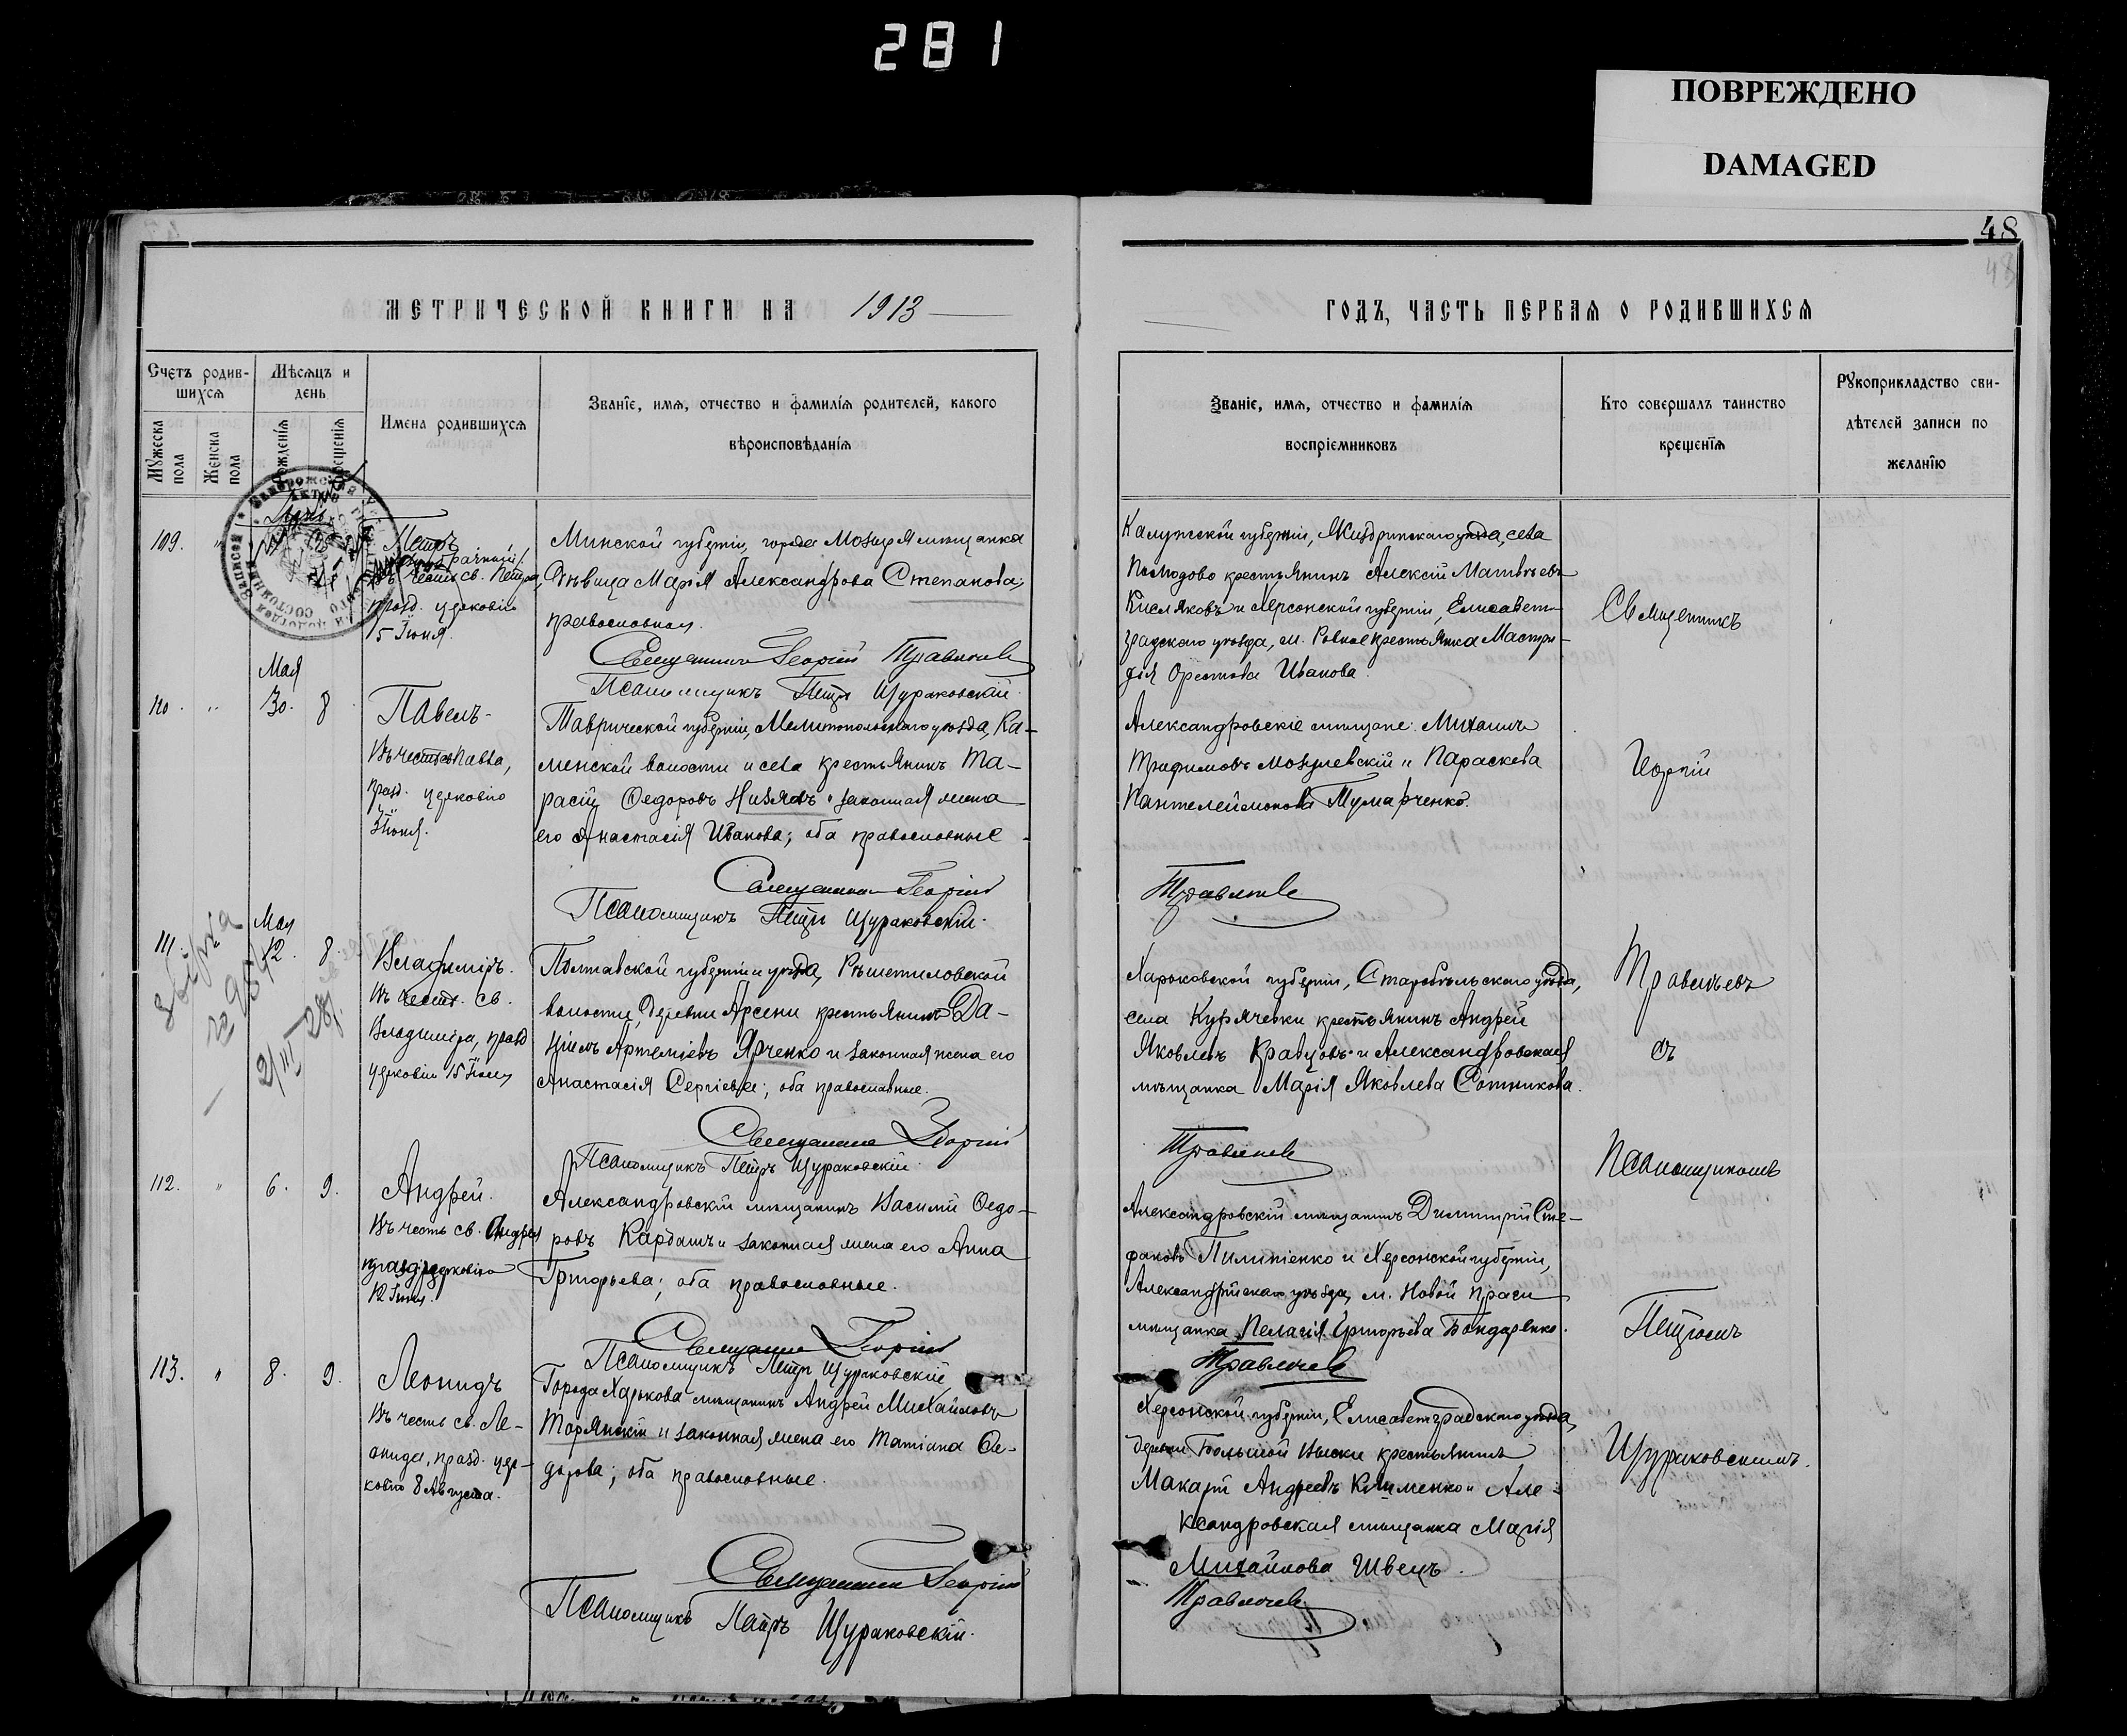 281
ПОВРЕЖДЕНО
DAMAGED
48
48
МЕТРИЧЕСКОЙ КНИГИ НА 1913
ГОДЪ, ЧАСТЬ ПЕРВАЯ О РОДИВШИХСЯ
Счетъ родив-
шихся
Мужеска пола
Женска пола
Мѣсяцъ и
день
рожденія
крещенія
Имена родившихся
Званіе, имя, отчество и фамилія родителей, какого
вѣроисповѣданія
Званіе, имя, отчество и фамилія
воспріемниковъ
Кто совершалъ таинство
крещенія
Рукоприкладство сви-
дѣтелей записи по
желанію
109. "
Петръ
въ честь св. Петра,
празд. церковію
15 Іюня.
Минской губерніи, города Мозыря мѣщанка
Дѣвица Марія Александрова Степанова,
православная.
Священникъ Георгій Травлевъ
Псаломщикъ Петръ Щураковскій.
Калужской губерніи, Жиздринскаго уѣзда, села
крестьянинъ Алексій Матвѣевъ
Кисляковъ и Херсонской губерніи, Елисавет-
градскаго уѣзда, м. Ровное крестьянка
Орестова Иванова.
Священникъ
110. "
Мая
30. 8
Павелъ.
Въ честь св Павла,
празд. церковію
3 Іюня.
Таврической губерніи, Мелитопольскаго уѣзда, Ка-
менской волости и села крестьянинъ Та-
расій Ѳедоровъ Низявъ и законная жена
его Анастасія Иванова; оба православные.
Священникъ Георгій
Псаломщикъ Петръ Щураковскій.
Александровскіе мѣщане: Михаилъ
Трифимовъ и Параскева
Пантелеймонова Тумарченко.
Травлевъ
Георгій
111.
Мая
12. 8.
Владиміръ.
Въ честь св.
Владиміра, празд
церковію 15 Іюля
Полтавской губерніи и уѣзда, Рѣшетиловской
волости, деревни Арсени крестьянинъ Да-
ніилъ Артеміевъ Ярченко и законная жена его
Анастасія Сергіева; оба православные.
Священникъ Георгій
Псаломщикъ Петръ Щураковскій.
Харьковской губерніи, Старобѣльскаго уѣзда,
села крестьянинъ Андрей
Яковлевъ Кравцовъ и Александровская
мѣщанка Марія Яковлева Сотникова.
Травлевъ
съ
112. " 6. 9.
Андрей.
Въ честь св. Андрея
празд. церковію
12 Іюня.
Александровскій мѣщанинъ Василій Ѳедо-
ровъ Кардашъ и законная жена его Анна
Григорьева; оба православные.
Священникъ Георгій
Псаломщикъ Петръ Щураковскій
Александровскій мѣщанинъ Димитрій Сте-
фановъ Пилипенко и Херсонской губерніи,
Александрійскаго уѣзда, м. Новой Праги
мѣщанка Пелагія Григорьева Бондаренко.
Травлевъ
Псаломщикомъ
Петромъ
113. " 8. 9.
Леонидъ
Въ честь св. Ле-
онида, празд. цер-
ковію 8 Августа.
Города Харькова мѣщанинъ Андрей Михайловъ
Торянскій и законная жена его Татіана Ѳе-
дорова; оба православные.
Священникъ Георгій
Псаломщикъ Петръ Щураковскій.
Херсонской губерніи, Елисаветградскаго уѣзда,
деревни Большой Выски крестьянинъ
Макарій Андреевъ Клименко и Але-
ксандровская мѣщанка Марія
Михайлова Швецъ.
Травлевъ
Щураковскимъ.